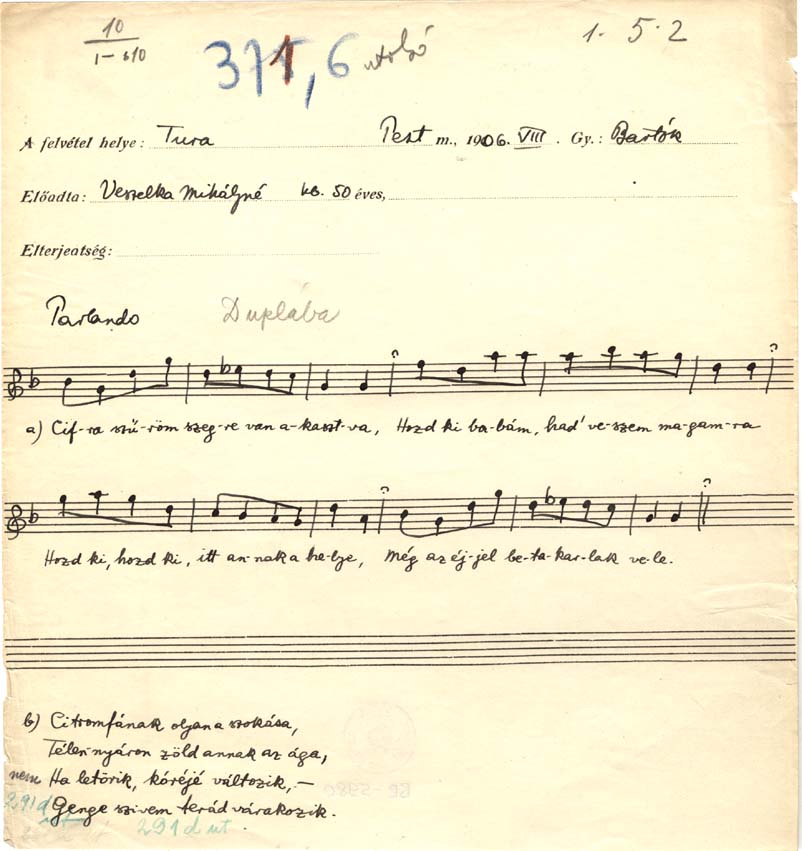 10
1-610
371,6 utolsó
1. 5. 2
A felvétel helye: Tura Pest m., 1906. VIII. Gy.: Bartók
Előadta: Veszelka Mihályné kb. 50 éves,
Elterjedtség:
Parlando Duplába
a) Cif-ra szű-röm szeg-re van a-kaszt-va, Hozd ki ba-bám, had' ve-szem ma-gam-ra
Hozd ki, hozd ki, itt an-nak a he-lye, Még az éj-jel be-ta-kar-lak ve-le.
b) Citromfának olyan a szokása,
Télen-nyáron zöld annak az ága,
nem Ha letörik, kóréjé változik,—
291d Genge szivem terád várakozik.
291 d ut